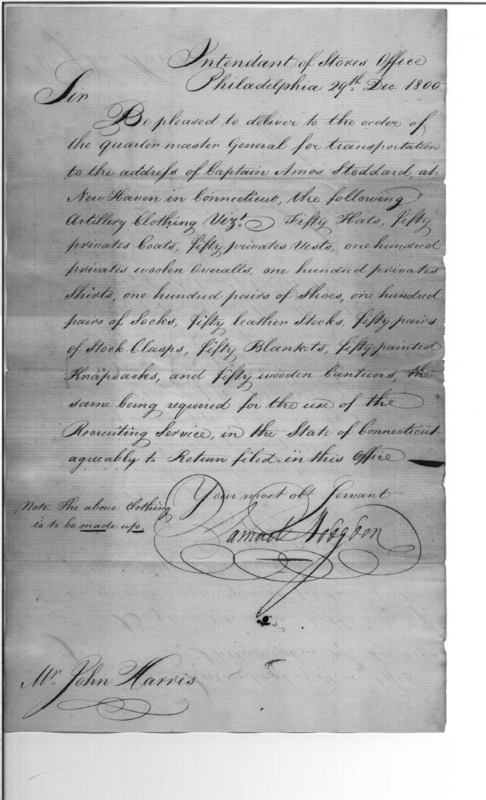 Intendant of Stores Office
Philadelphia 29th. Dec. 1800
Sir
Be pleased to deliver to the order of
the Quarter master General for transportation
to the address of Captain Amos Stoddard, at
New Haven in Connecticut, the following
Artillery Clothing Vizt. Fifty Hats, fifty
privates Coats, fifty privates Vests, one hundred
privates woolen Overalls, one hundred privates
Shirts, one hundred pairs of Shoes, one hundred
pairs of Socks, fifty leather Stocks, fifty pairs
of Stock Clasps, fifty Blankets, fifty painted
Knapsacks, and fifty wooden Canteens, the
same being required for the use of the
Recruiting Service, in the State of Connecticut
agreeably to Return filed in this Office
Your most obt. Servant
Note The above Clothing
is to be made up.
Samuel Hodgdon
Mr. John Harris